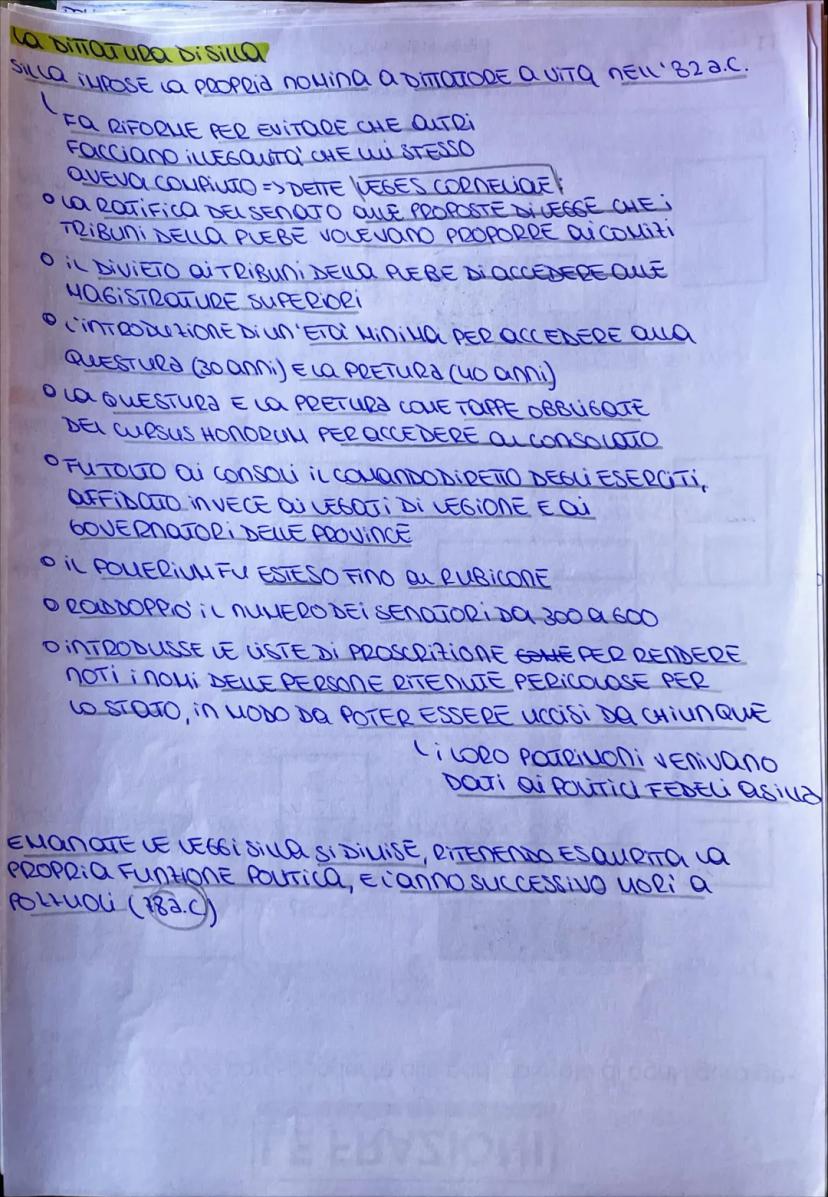 LA DITTATURA DI SILLA
SILLA IMPOSE LA PROPRIA NOMINA A DITTATORE A VITA NELL'82 a.C.
FA RIFORME PER EVITARE CHE ALTRI
FACCIANO ILLEGALITA' CHE LUI STESSO
AVEVA COMPIUTO => DETTE LEGES CORNELIAE:
O LA RATIFICA DEL SENATO ALLE PROPOSTE DI LEGGE CHE I
TRIBUNI DELLA PLEBE VOLEVANO PROPORRE AI COMIZI
O IL DIVIETO AI TRIBUNI DELLA PLEBE DI ACCEDERE ALLE
MAGISTRATURE SUPERIORI
O L'INTRODUZIONE DI UN'ETA' MINIMA PER ACCEDERE ALLA
QUESTURA (30 ANNI) E LA PRETURA (40 ANNI)
O LA QUESTURA E LA PRETURA COME TAPPE OBBLIGATE
DEL CURSUS HONORUM PER ACCEDERE AL CONSOLATO
O FU TOLTO AI CONSOLI IL COMANDO DIRETTO DEGLI ESERCITI,
AFFIDATO INVECE AI LEGATI DI LEGIONE E AI
GOVERNATORI DELLE PROVINCE
O IL POMERIUM FU ESTESO FINO AL RUBICONE
O RADDOPPIO' IL NUMERO DEI SENATORI DA 300 A 600
O INTRODUSSE LE LISTE DI PROSCRIZIONE COME PER RENDERE
NOTI I NOMI DELLE PERSONE RITENUTE PERICOLOSE PER
LO STATO, IN MODO DA POTER ESSERE UCCISI DA CHIUNQUE
I LORO PATRIMONI VENIVANO
DATI AI POLITICI FEDELI A SILLA
EMANATE LE LEGGI SILLA SI DIMISE, RITENENDO ESAURITA LA
PROPRIA FUNZIONE POLITICA, E L'ANNO SUCCESSIVO MORI A
POZZUOLI (78 a.C)
LE FRAZIONI